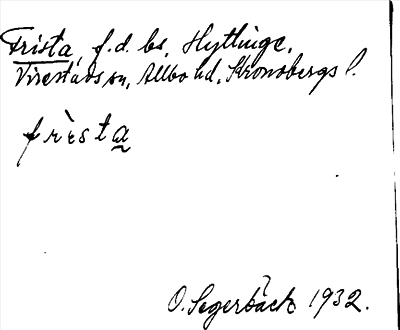 Frista, f.d. bs, Hyttinge,
Virestads sn, Allbo hd, Kronobergs l.
frista
O. Segerbäck 1932.